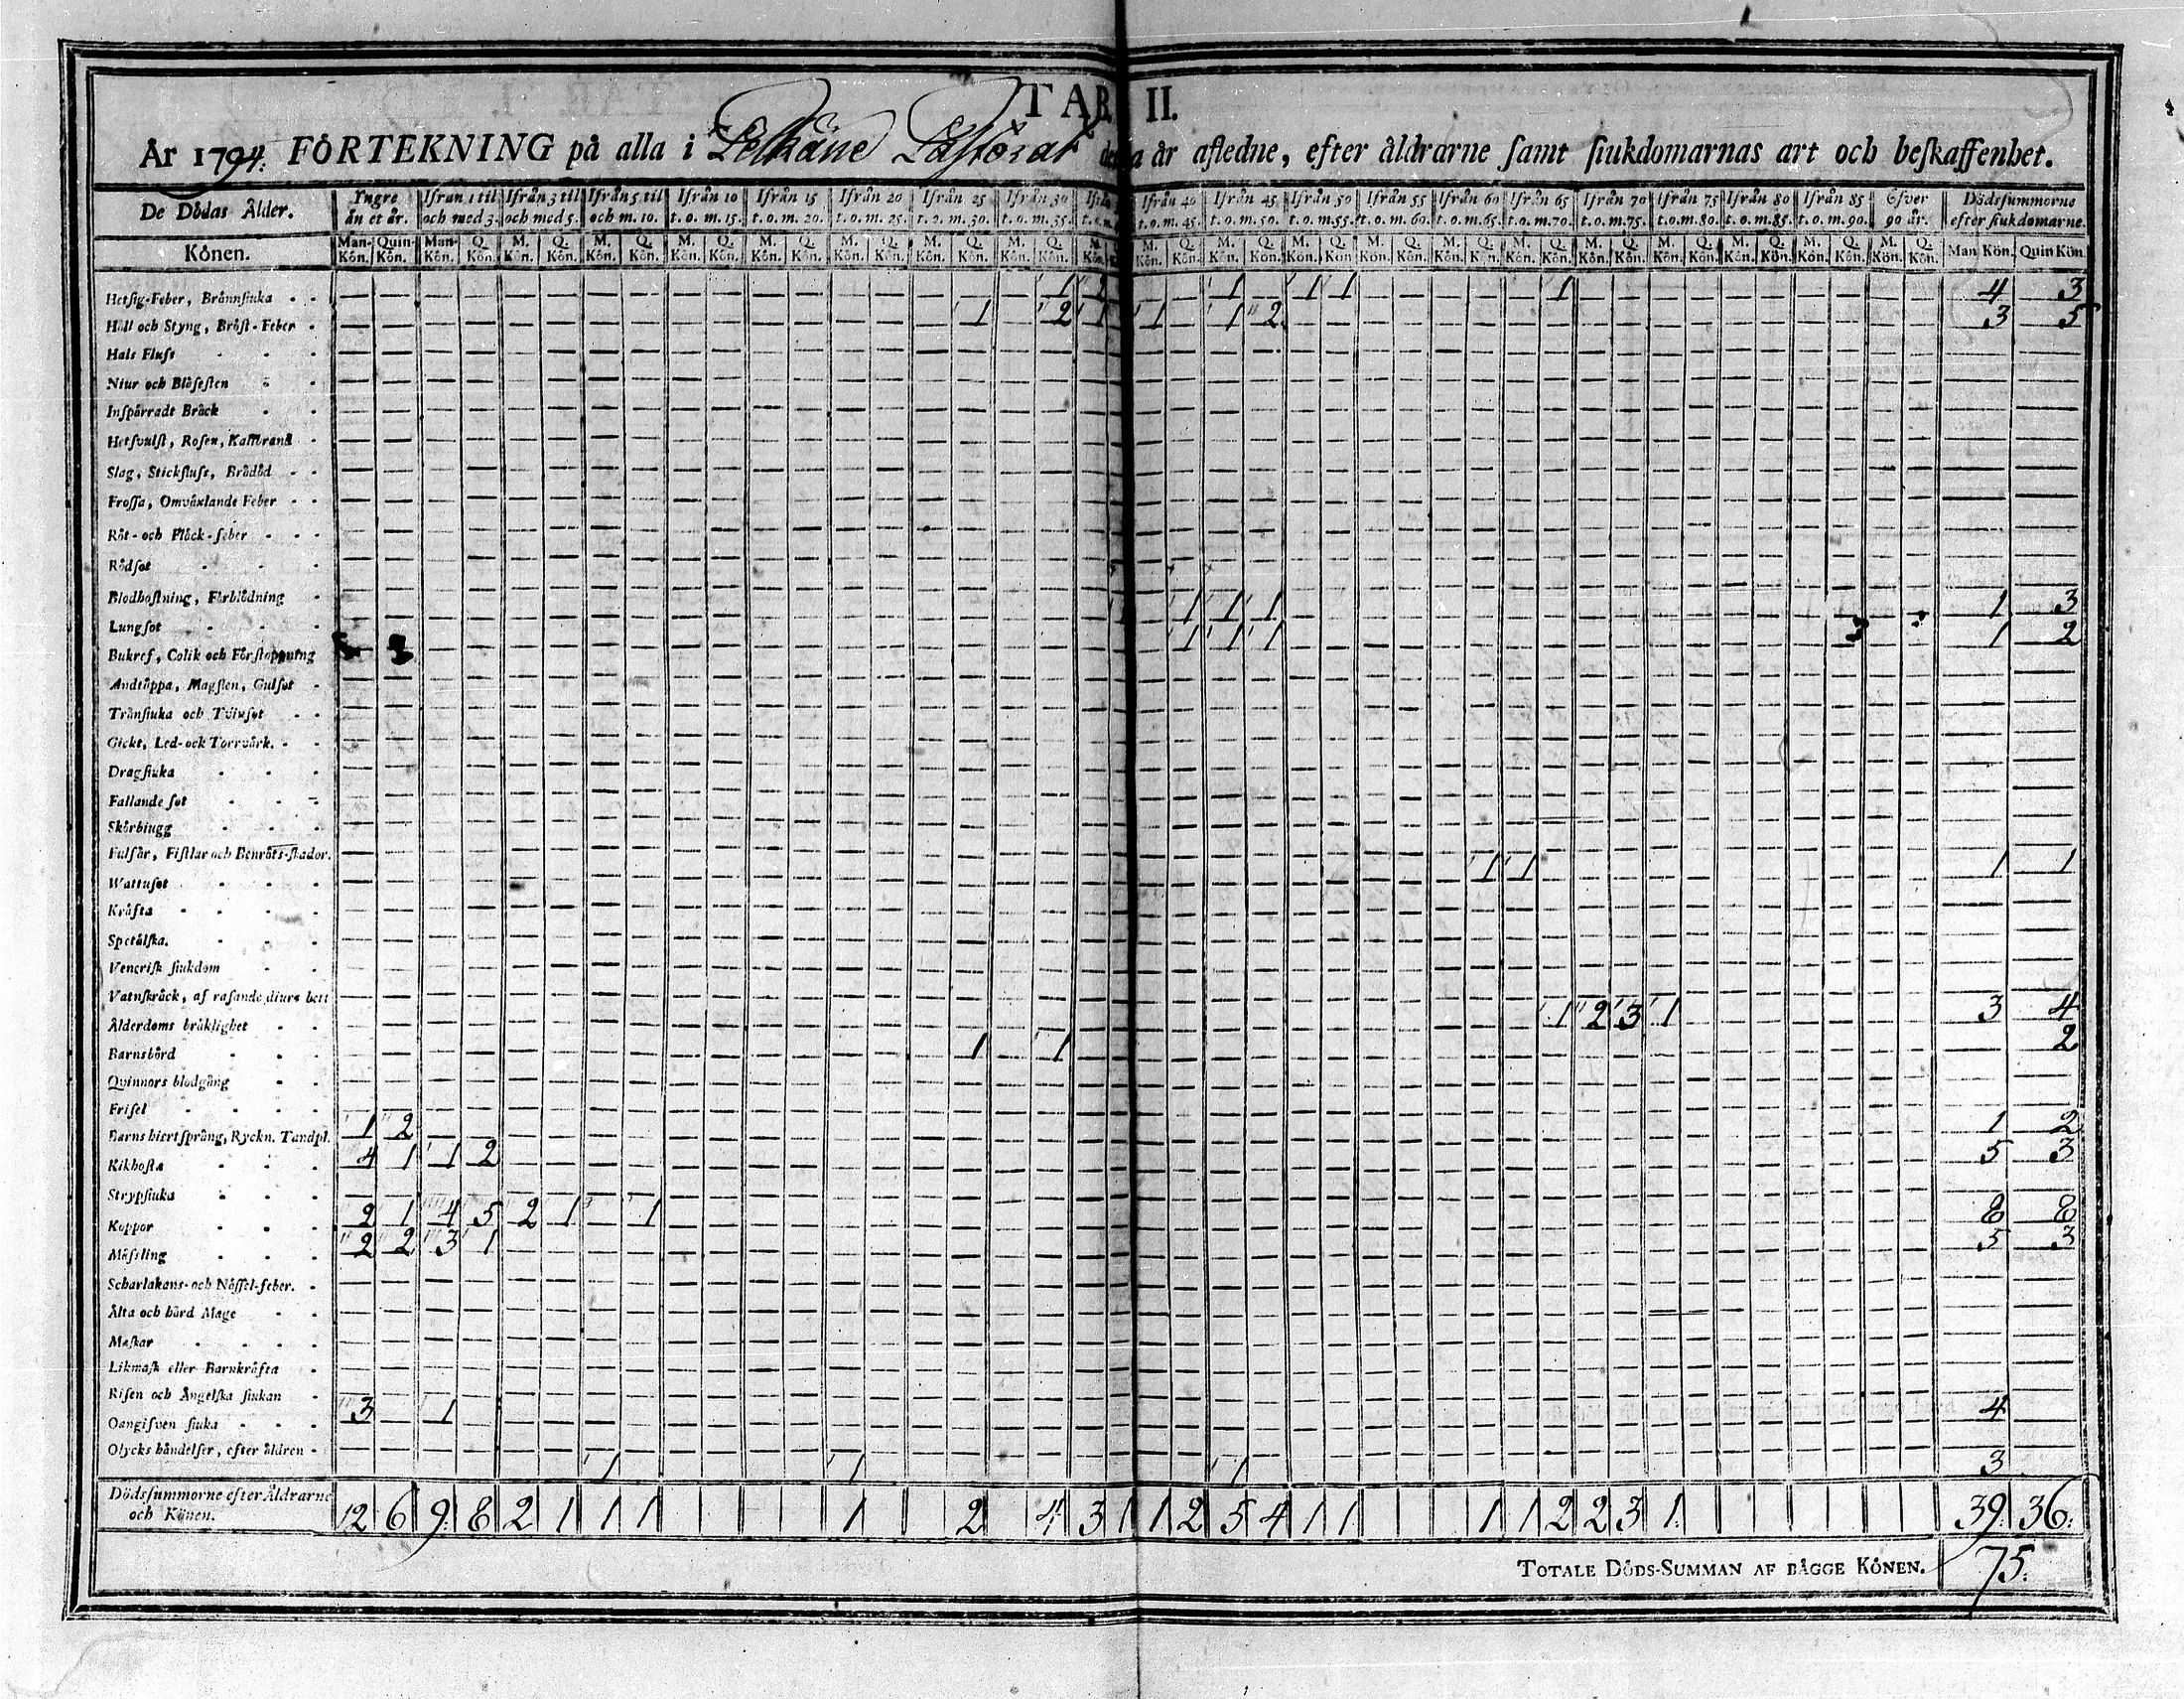 TAB. II.
År 1794. FÖRTEKNING på alla i Pelkäne Pastorat detta år afledne, efter åldrarne samt siukdomarnas art och beskaffenhet.
De Dödas Ålder. Yngre än et år. Ifrån 1 til och med 3. Ifrån 3 til och med 5. Ifrån 5 til och m. 10. Ifrån 10 t. o. m. 15. Ifrån 15 t. o. m. 20. Ifrån 20 t. o. m. 25. Ifrån 25 t. o. m. 30. Ifrån 30 t. o. m. 35. Ifrån 40 t. o. m. 45. Ifrån 45 t. o. m. 50. Ifrån 50 t. o. m. 55. Ifrån 55 t. o. m. 60. Ifrån 60 t. o. m. 65. Ifrån 65 t. o. m. 70. Ifrån 70 t. o. m. 75. Ifrån 75 t. o. m. 80. Ifrån 80 t. o. m. 85. Ifrån 85 t. o. m. 90. Öfver 90 år. Dödssummorne efter siukdomarne.
Könen. Man-Kön. Quin-Kön. Man-Kön. Q. Kön. M. Kön. Q. Kön. M. Kön. Q. Kön. M. Kön. Q. Kön. M. Kön. Q. Kön. M. Kön. Q. Kön. M. Kön. Q. Kön. M. Kön. Q. Kön. M. Kön. M. Kön. Q. Kön. M. Kön. Q. Kön. M. Kön. Q. Kön. M. Kön. Q. Kön. M. Kön. Q. Kön. M. Kön. Q. Kön. M. Kön. Q. Kön. M. Kön. Q. Kön. M. Kön. Q. Kön. M. Kön. Q. Kön. M. Kön. Q. Kön. Man Kön. Quin Kön.
Hetsig-Feber, Brännsiuka 1 2 1 1 1 1 4 3
Håll och Styng, Bröst-Feber 1 2 1 1 1 2 3 5
Hals Fluss
Niur och Blåsesten
Inspärradt Bråck
Hetsvulst, Rosen, Kallbrand
Slag, Stickfluss, Brådöd
Frossa, Omväxlande Feber
Röt- och Fläck-feber
Rödsot
Blodhostning, Förblödning 1 1 1 1 3
Lungsot 1 1 1 1 2
Bukref, Colik och Förstoppning
Andtäppa, Magsten, Gulsot
Trånsiuka och Tvinsot
Gickt, Led- ock Torrvärk.
Dragsiuka
Fallande sot
Skörbiugg
Fulsår, Fistlar och Benröts-skador. 1 1 1 1
Wattusot
Kräfta
Spetälska.
Venerisk siukdom
Vatnskräck, af rasande diurs bett 1 2 3 1 3 4
Ålderdoms bräklighet 1 1 2
Barnsbörd
Quinnors blodgång
Frisel 1 2 1 2
Barns hiertsprång, Ryckn. Tandpl. 4 1 1 2 5 3
Kikhosta
Strypsiuka 2 1 4 5 2 1 1 8 8
Koppor 2 2 3 1 5 3
Mässling
Scharlakans- och Nässel-feber.
Älta och hård Mage
Maskar
Likmask eller Barnkräfta
Risen och Ängelska siukan 3 1 4
Oangifven siuka
Olycks händelser, efter åldren 1 1 1 3
Dödssummorne efter Åldrarne och Könen. 12 6 9 8 2 1 1 1 1 2 4 3 1 1 2 5 4 1 1 1 1 2 2 3 1. 39. 36.
TOTALE DÖDS-SUMMAN AF BÄGGE KÖNEN. 75.